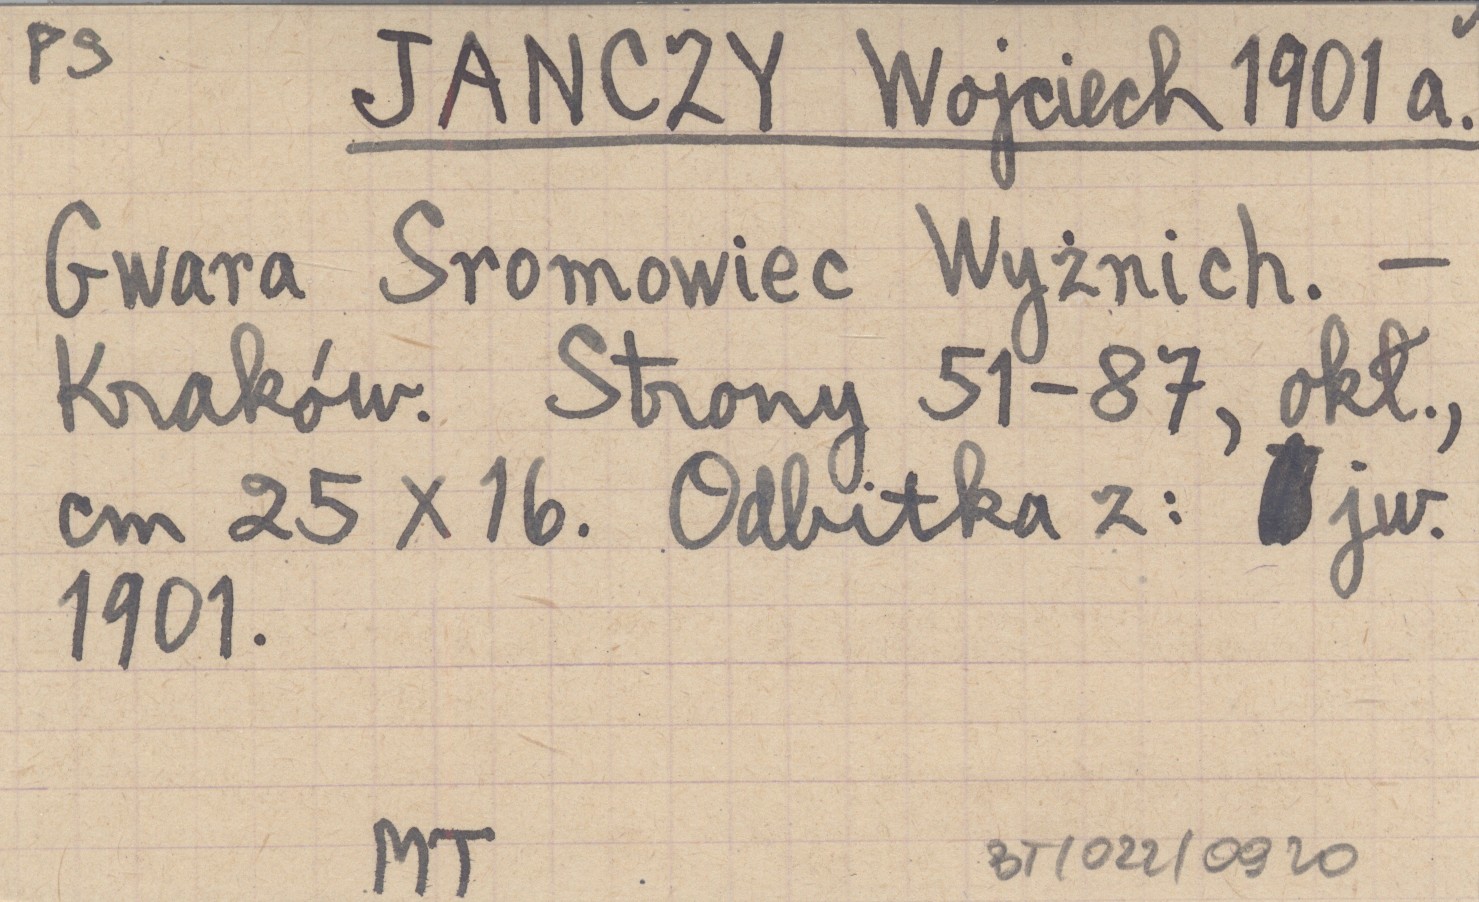 PS
JANCZY Wojciech 1901 a.
Gwara Sromowiec Wyżnich. —
Kraków. Strony 51-87, okł.,
cm 25 x 16. Odbitka z: jw.
1901.
MT
BT/022/0920